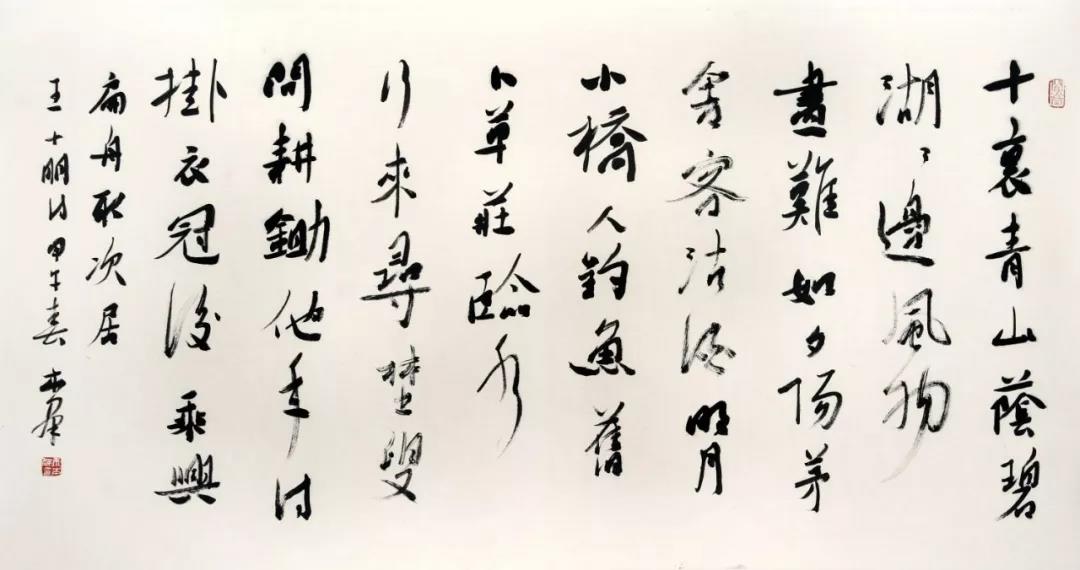 十裏青山蔭碧
湖〻邊風物
畫難如夕陽茅
舍客沽酒明月
小橋人釣魚舊
卜草莊臨水
竹來尋埜叟
問耕鋤他年待
掛衣冠後乘興
扁舟取次居
王十朋詩甲午春